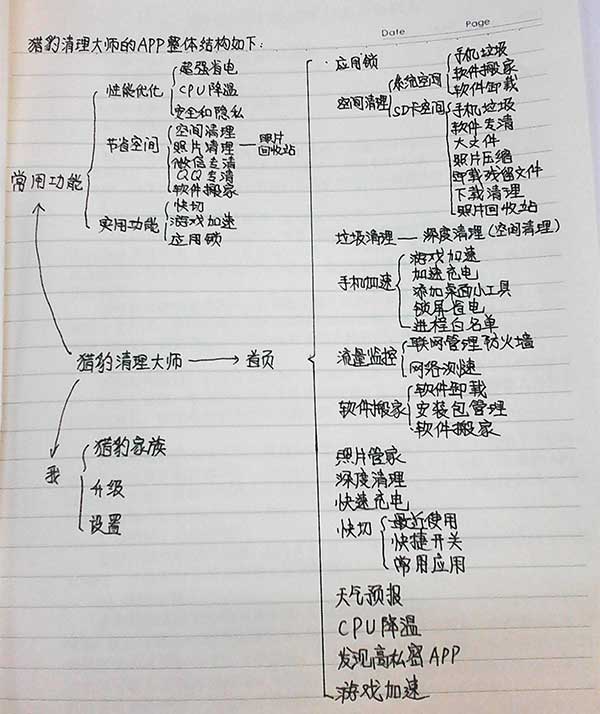 Date Page
猎豹清理大师的APP整体结构如下:
常用功能
性能优化
超强省电
CPU降温
安全和隐私
节省空间
空间清理
照片清理 — 照片回收站
微信专清
QQ专清
软件搬家
实用功能
快切
游戏加速
应用锁
猎豹清理大师 → 首页
我
猎豹家族
升级
设置
应用锁
空间清理
系统空间
手机垃圾
软件搬家
软件卸载
SD卡空间
手机垃圾
软件专清
大文件
照片压缩
卸载残留文件
下载清理
照片回收站
垃圾清理 — 深度清理(空间清理)
手机加速
游戏加速
加速充电
添加桌面小工具
锁屏省电
进程白名单
流量监控
联网管理防火墙
网络测速
软件搬家
软件卸载
安装包管理
软件搬家
照片管家
深度清理
快速充电
快切
最近使用
快捷开关
常用应用
天气预报
CPU降温
发现高私密APP
游戏加速